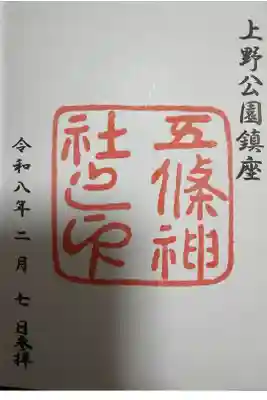 上野公園鎮座
五條神
社之印
令和八年二月七日来拝